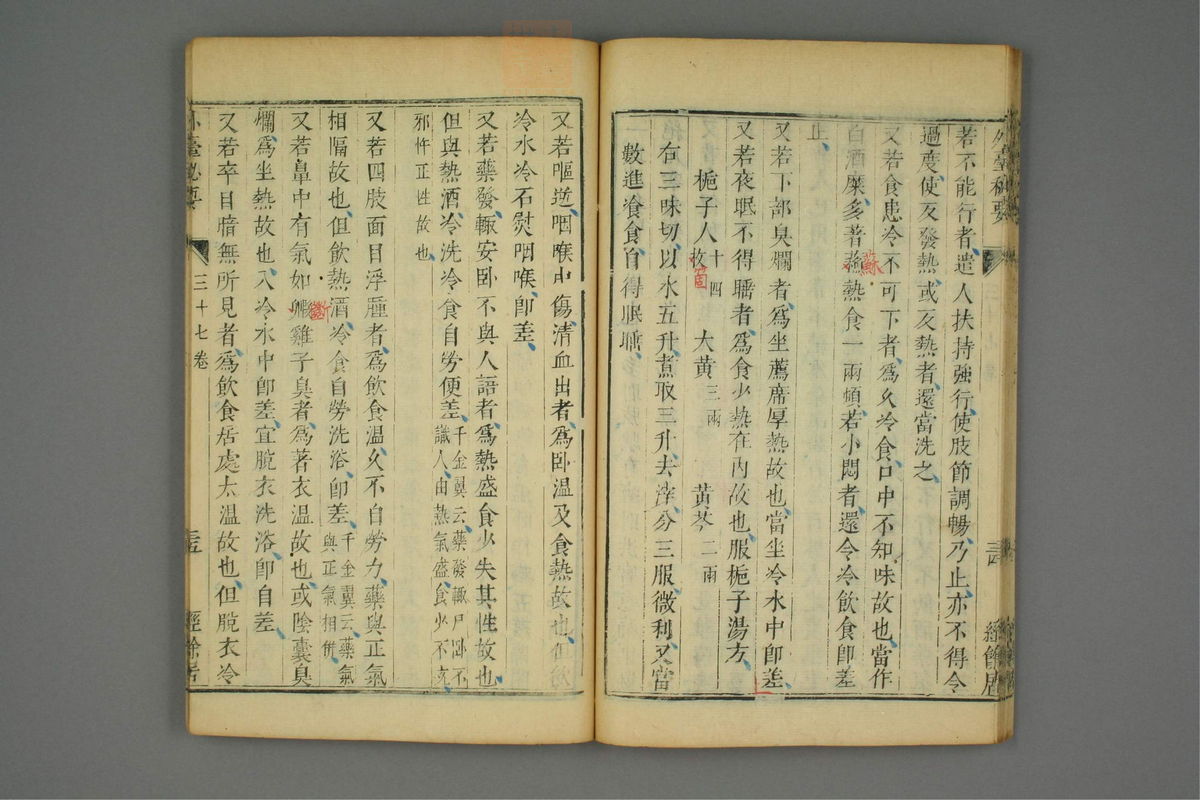 外臺秘要
三西
經餘居
若不能行者遣人扶持強行使肢節調暢乃止亦不得令
過度使反發熱或反熱者還當洗之
又若食患冷不可下者為久冷食口中不知味故也當作
白酒糜多著酥熱食一兩頓若小悶者還令冷飲食即差
止
又若下部臭爛者為坐薦席厚熱故也當坐冷水中即差
又若夜眠不得睡者為食少熱在內故也服梔子湯方
梔子人十四枚 大黃三兩 黃芩二兩
右三味切以水五升煮取三升去滓分三服微利又當
數進飡食自得眠睡
又若嘔逆咽喉中傷清血出者為卧温及食熱故也但飲
冷水冷石熨咽喉即差
又若藥發輙安卧不與人語者為熱盛食少失其性故也
但與熱酒冷洗冷食自勞便差千金翼云藥發輙尸卧不識人由熱氣盛食少不充
邪忤正性故也
又若四肢面目浮腫者為飲食温久不自勞力藥與正氣
相隔故也但飲熱酒冷食自勞洗浴即差千金翼云藥氣與正氣相併
又若鼻中有氣如毈雞子臭者為著衣温故也或陰囊臭
爛為坐熱故也入冷水中即差宜脫衣洗浴即自差
又若卒目暗無所見者為飲食居處太温故也但脫衣冷
外臺秘要
三十七卷
三五
經餘居